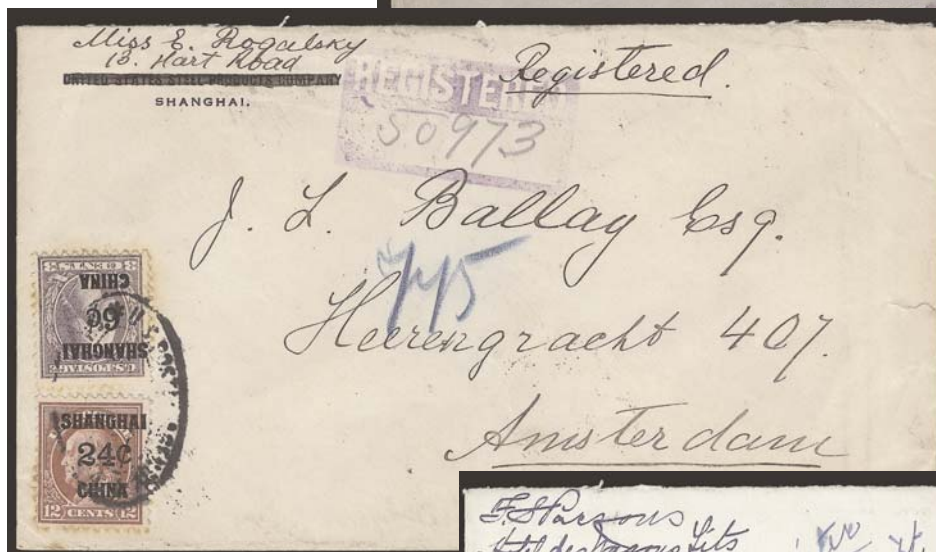 Miss E. Rogalsky
13. Hart Road
UNITED STATES STEEL PRODUCTS COMPANY
SHANGHAI.
REGISTERED
50973
Registered.
J. L. Ballay Esq.
Heerengracht 407.
Amsterdam
U.S. POSTAGE
SHANGHAI
6¢
CHINA
3 CENTS 3
SHANGHAI
24¢
CHINA
12 CENTS 12
F. S. Parsons